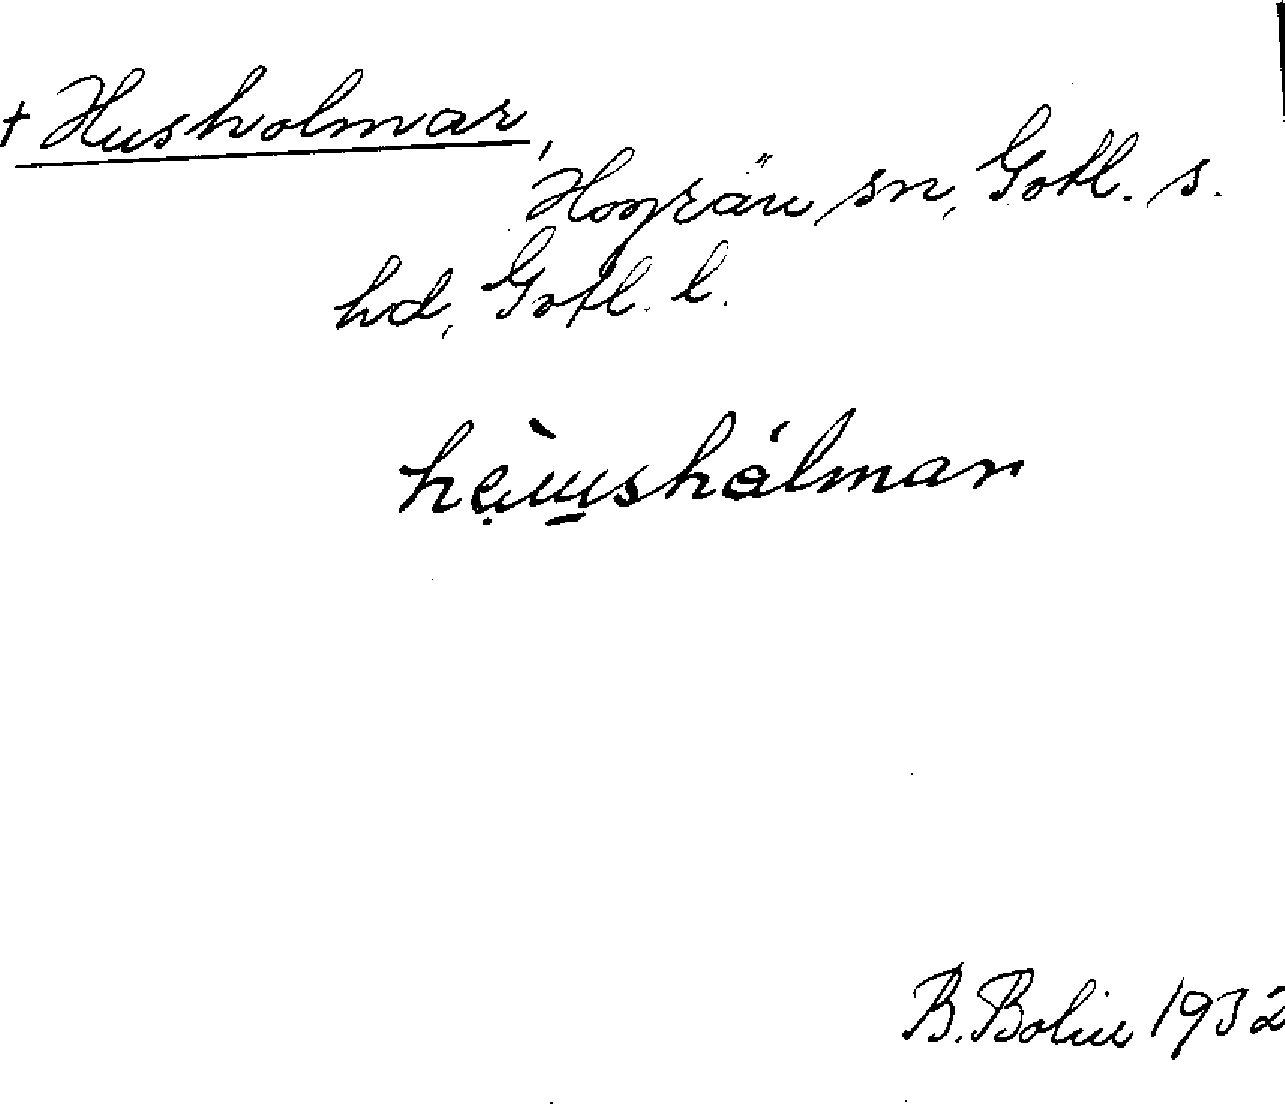 + Husholmar,
Hogrän sn, Gotl. s.
hd, Gotl. l.
B. Bolin 1932